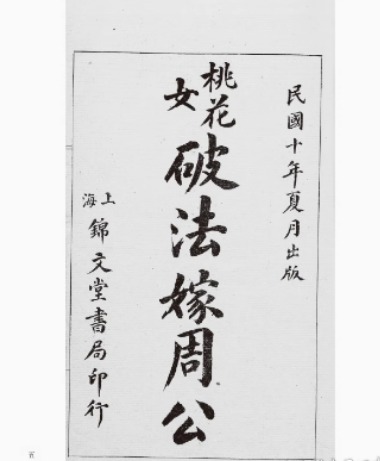 民國十年夏月出版
桃花女
破法嫁周公
上海
錦文堂書局印行